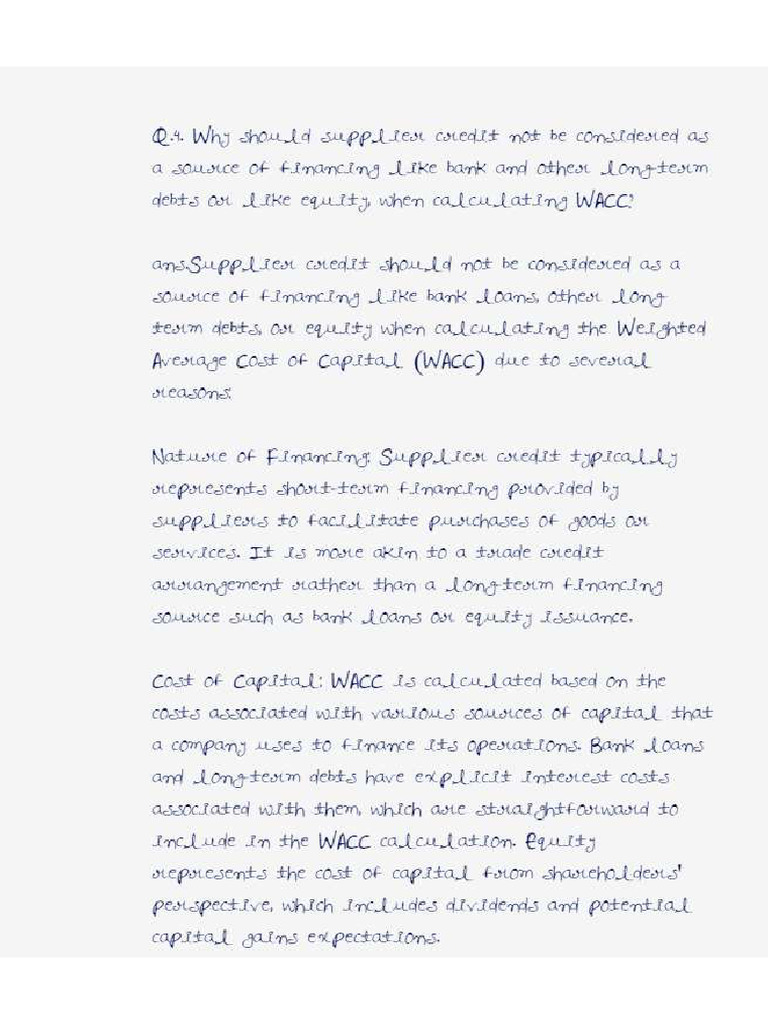 Q.4. Why should supplier credit not be considered as
a source of financing like bank and other long-term
debts or like equity, when calculating WACC?
ans.Supplier credit should not be considered as a
source of financing like bank loans, other long
term debts, or equity when calculating the Weighted
Average Cost of Capital (WACC) due to several
reasons:
Nature of Financing: Supplier credit typically
represents short-term financing provided by
suppliers to facilitate purchases of goods or
services. It is more akin to a trade credit
arrangement rather than a long-term financing
source such as bank loans or equity issuance.
Cost of Capital: WACC is calculated based on the
costs associated with various sources of capital that
a company uses to finance its operations. Bank loans
and long-term debts have explicit interest costs
associated with them, which are straightforward to
include in the WACC calculation. Equity
represents the cost of capital from shareholders'
perspective, which includes dividends and potential
capital gains expectations.